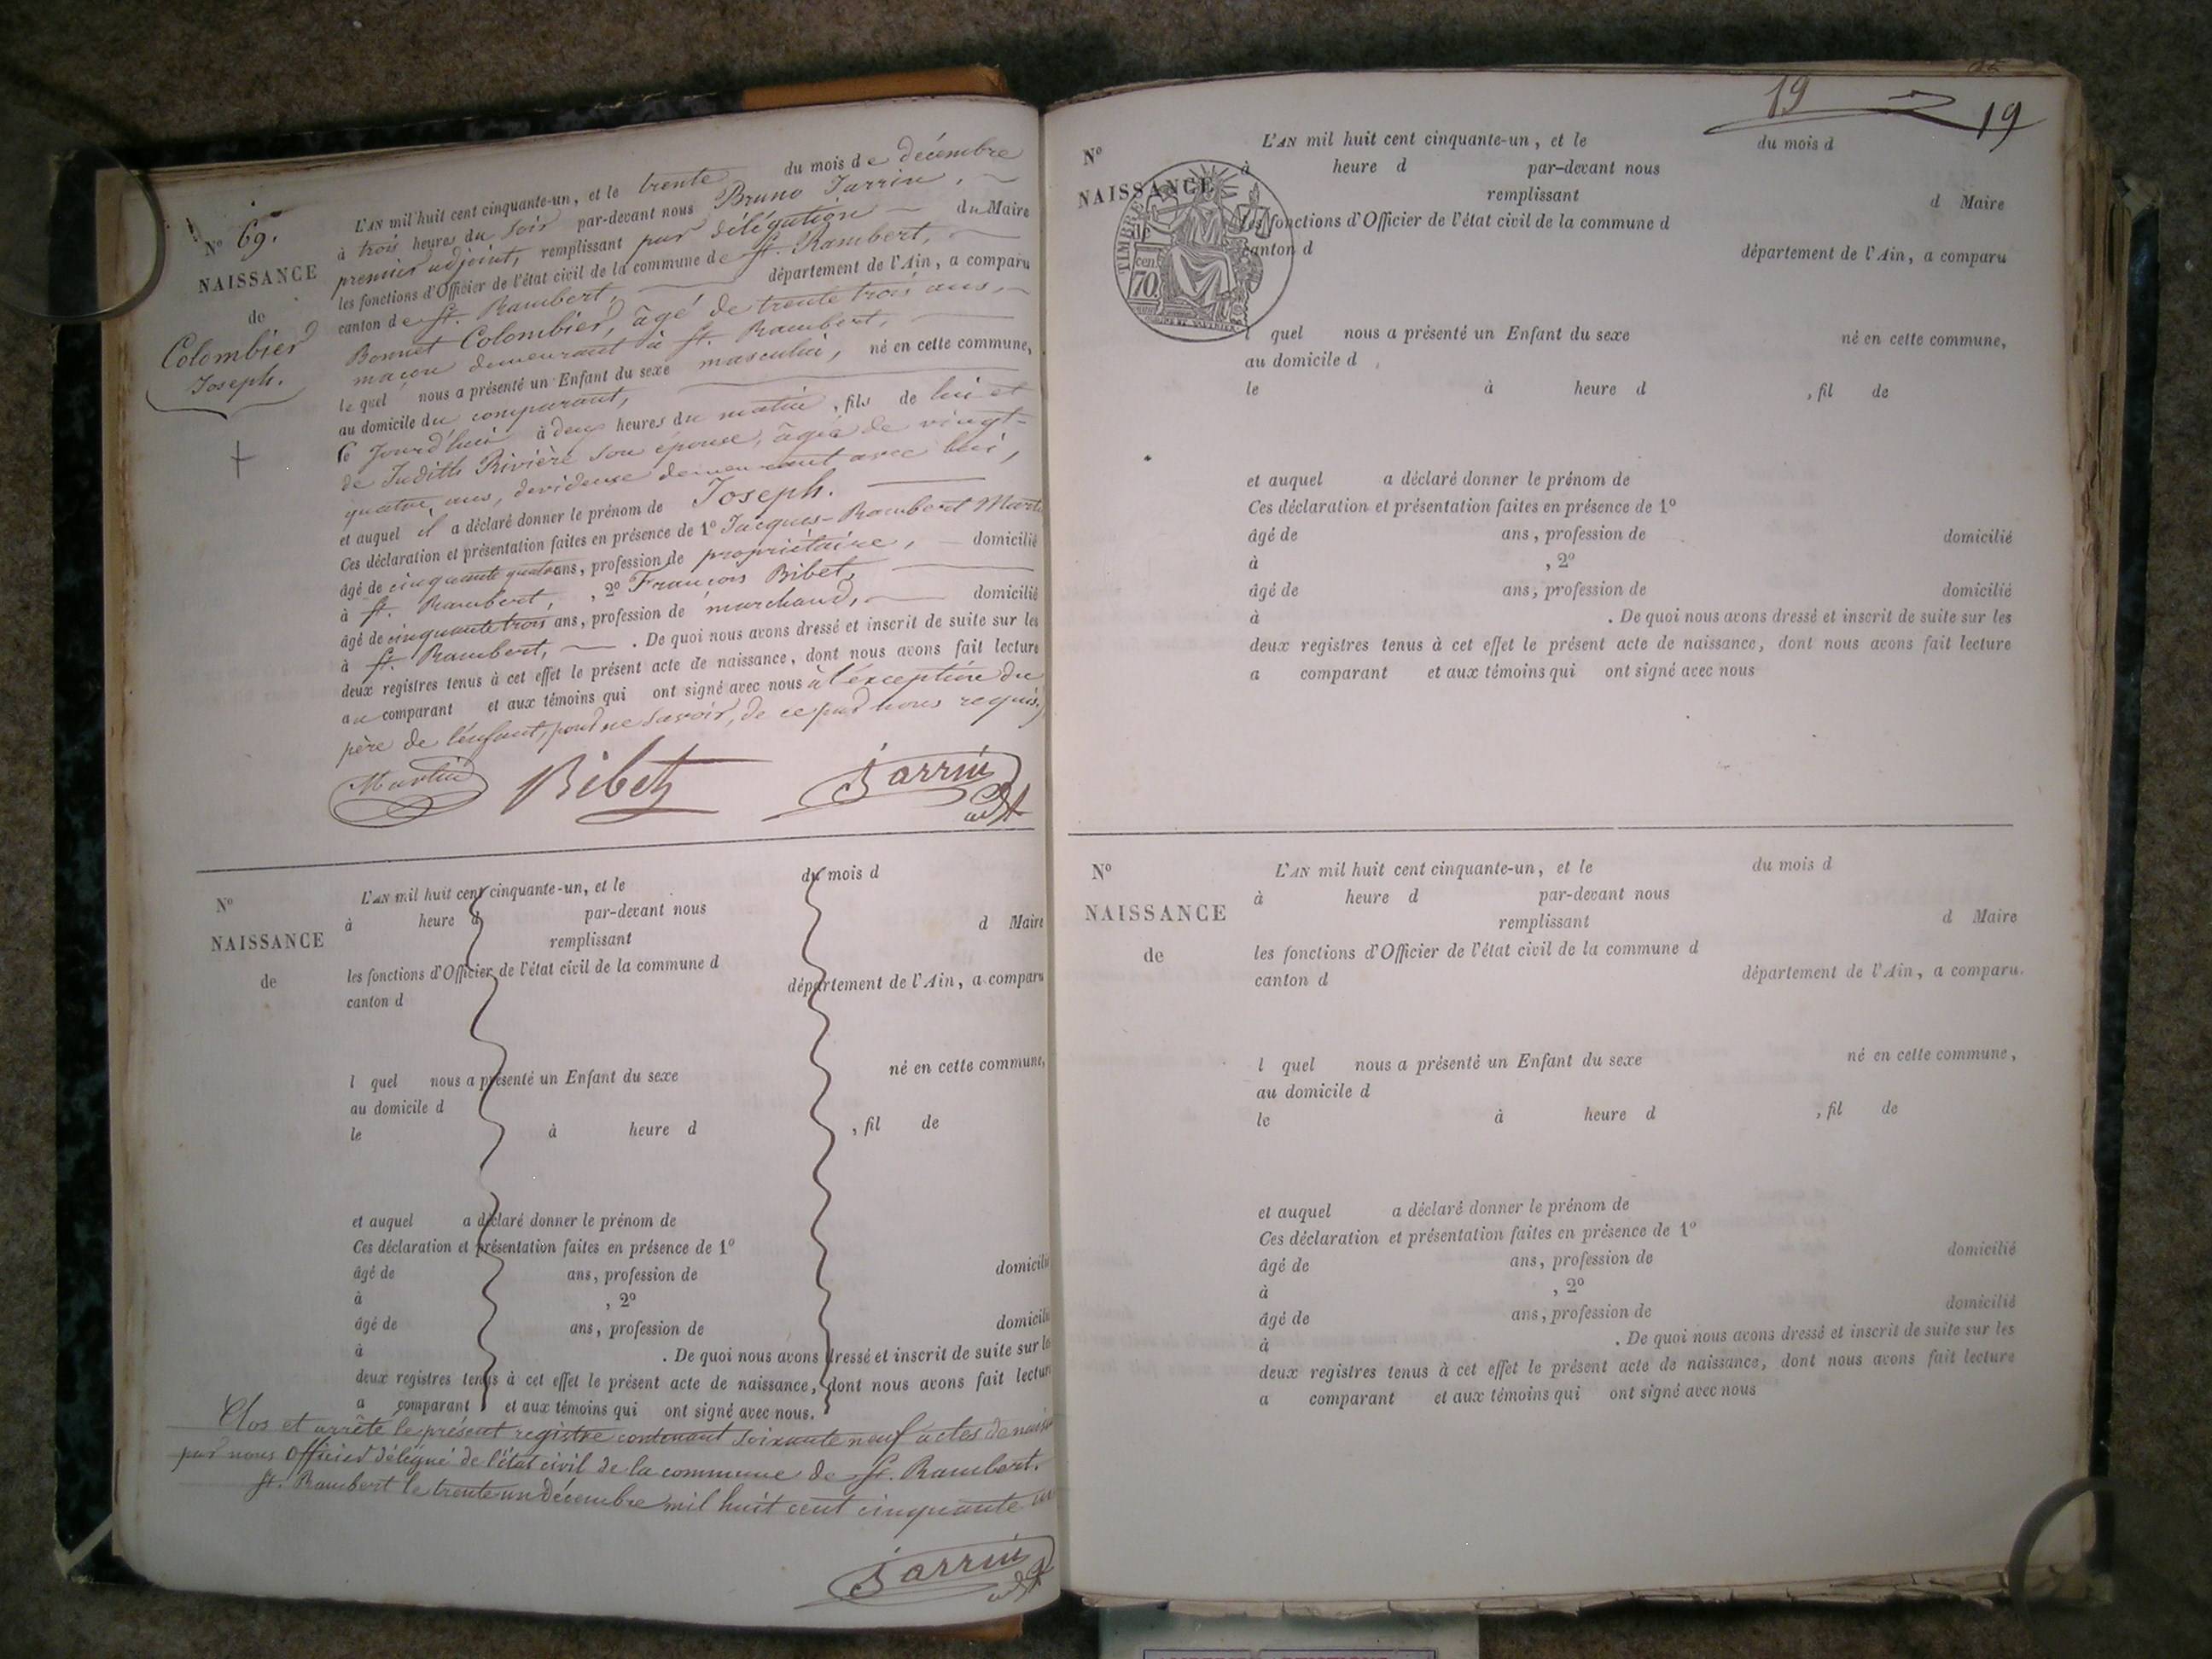 N° 69.
NAISSANCE
de
Colombier
Joseph.
L'AN mil huit cent cinquante-un, et le trente du mois de décembre
à trois heures du soir par-devant nous Bruno Jarrin,
premier adjoint, remplissant par délégation du Maire
les fonctions d'Officier de l'état civil de la commune de St. Rambert,
canton de St. Rambert, département de l'Ain, a comparu
Bonnet Colombier, âgé de trente trois ans,
maçon demeurant à St. Rambert,
le quel nous a présenté un Enfant du sexe masculin, né en cette commune,
au domicile du comparant,
le jourd'hui à deux heures du matin, fils de lui et
de Judith Rivière son épouse, âgée de vingt-
quatre ans, devideuse demeurant avec lui,
et auquel il a déclaré donner le prénom de Joseph.
Ces déclaration et présentation faites en présence de 1° Jacques-Rambert Martin
âgé de cinquante quatre ans, profession de propriétaire, domicilié
à St. Rambert, , 2° François Bibet,
âgé de cinquante trois ans, profession de marchand, domicilié
à St. Rambert, . De quoi nous avons dressé et inscrit de suite sur les
deux registres tenus à cet effet le présent acte de naissance, dont nous avons fait lecture
au comparant et aux témoins qui ont signé avec nous à l'exception du
père de l'enfant, pour ne savoir, de ce par nous requis,
Martin Bibet Jarrin
adjt
N°
NAISSANCE
de
L'AN mil huit cent cinquante-un, et le du mois d
à heure d par-devant nous
remplissant d Maire
les fonctions d'Officier de l'état civil de la commune d
canton d département de l'Ain, a comparu
l quel nous a présenté un Enfant du sexe né en cette commune,
au domicile d
le à heure d , fil de
et auquel a déclaré donner le prénom de
Ces déclaration et présentation faites en présence de 1°
âgé de ans, profession de domicilié
à , 2°
âgé de ans, profession de domicilié
à . De quoi nous avons dressé et inscrit de suite sur les
deux registres tenus à cet effet le présent acte de naissance, dont nous avons fait lecture
a comparant et aux témoins qui ont signé avec nous.
Clos et arrêté le présent registre contenant soixante neuf actes de
par nous Officier délégué de l'état civil de la commune de St. Rambert.
St. Rambert le trente un Décembre mil huit cent cinquante un
Jarrin
adjt
19
19
N°
NAISSANCE
de
TIMBRE
cen.
70.
L'AN mil huit cent cinquante-un, et le du mois d
à heure d par-devant nous
remplissant d Maire
les fonctions d'Officier de l'état civil de la commune d
canton d département de l'Ain, a comparu
l quel nous a présenté un Enfant du sexe né en cette commune,
au domicile d
le à heure d , fil de
et auquel a déclaré donner le prénom de
Ces déclaration et présentation faites en présence de 1°
âgé de ans, profession de domicilié
à , 2°
âgé de ans, profession de domicilié
à . De quoi nous avons dressé et inscrit de suite sur les
deux registres tenus à cet effet le présent acte de naissance, dont nous avons fait lecture
a comparant et aux témoins qui ont signé avec nous
N°
NAISSANCE
de
L'AN mil huit cent cinquante-un, et le du mois d
à heure d par-devant nous
remplissant d Maire
les fonctions d'Officier de l'état civil de la commune d
canton d département de l'Ain, a comparu.
l quel nous a présenté un Enfant du sexe né en cette commune,
au domicile d
le à heure d , fil de
et auquel a déclaré donner le prénom de
Ces déclaration et présentation faites en présence de 1°
âgé de ans, profession de domicilié
à , 2°
âgé de ans, profession de domicilié
à . De quoi nous avons dressé et inscrit de suite sur les
deux registres tenus à cet effet le présent acte de naissance, dont nous avons fait lecture
a comparant et aux témoins qui ont signé avec nous